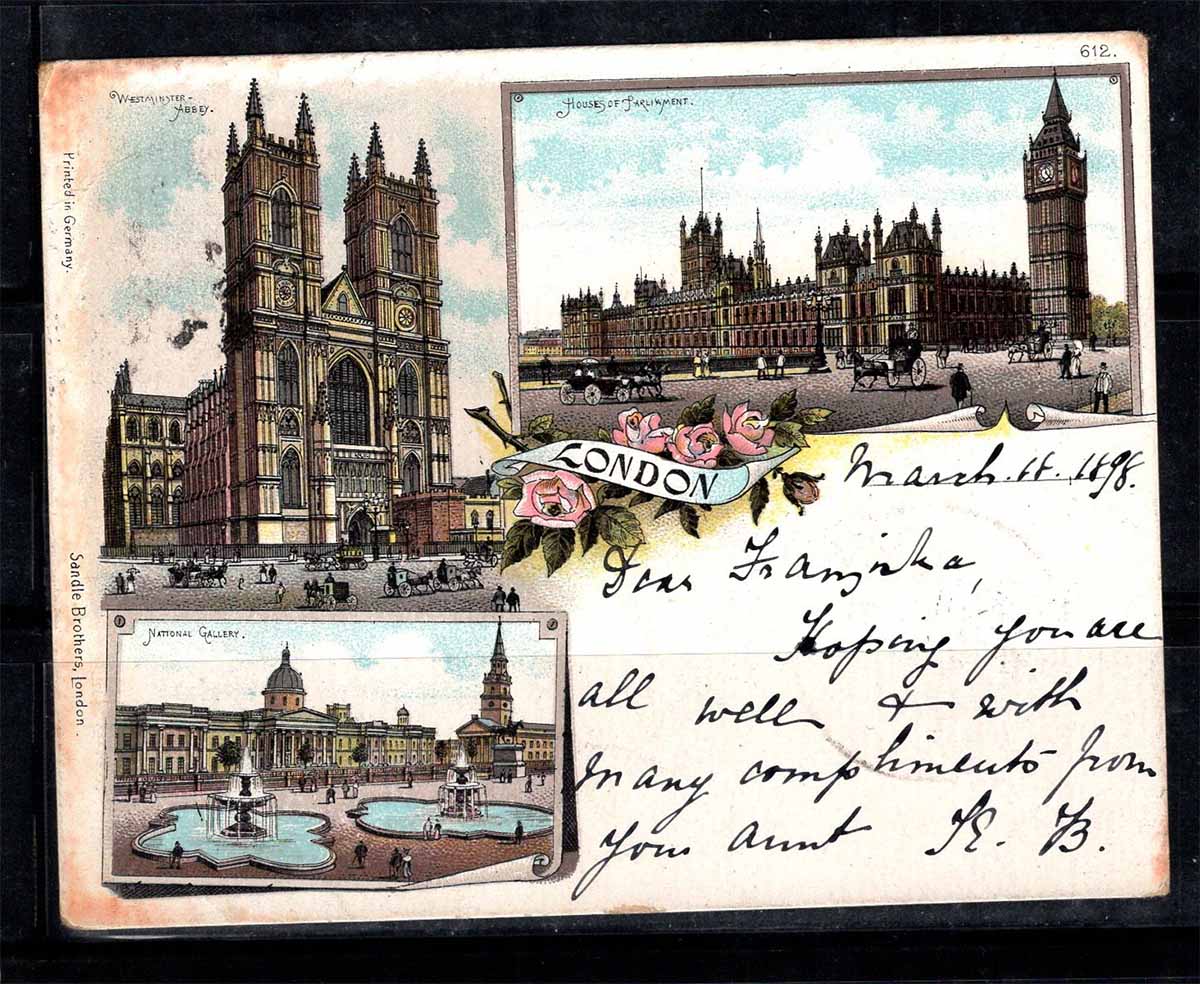 612.
WESTMINSTER-
ABBEY.
HOUSES OF PARLIAMENT.
Printed in Germany.
LONDON
March. 18. 1898.
Dear Franziska,
Hoping you are
all well & with
many compliments from
your aunt K. B.
NATIONAL GALLERY.
Sandle Brothers, London.